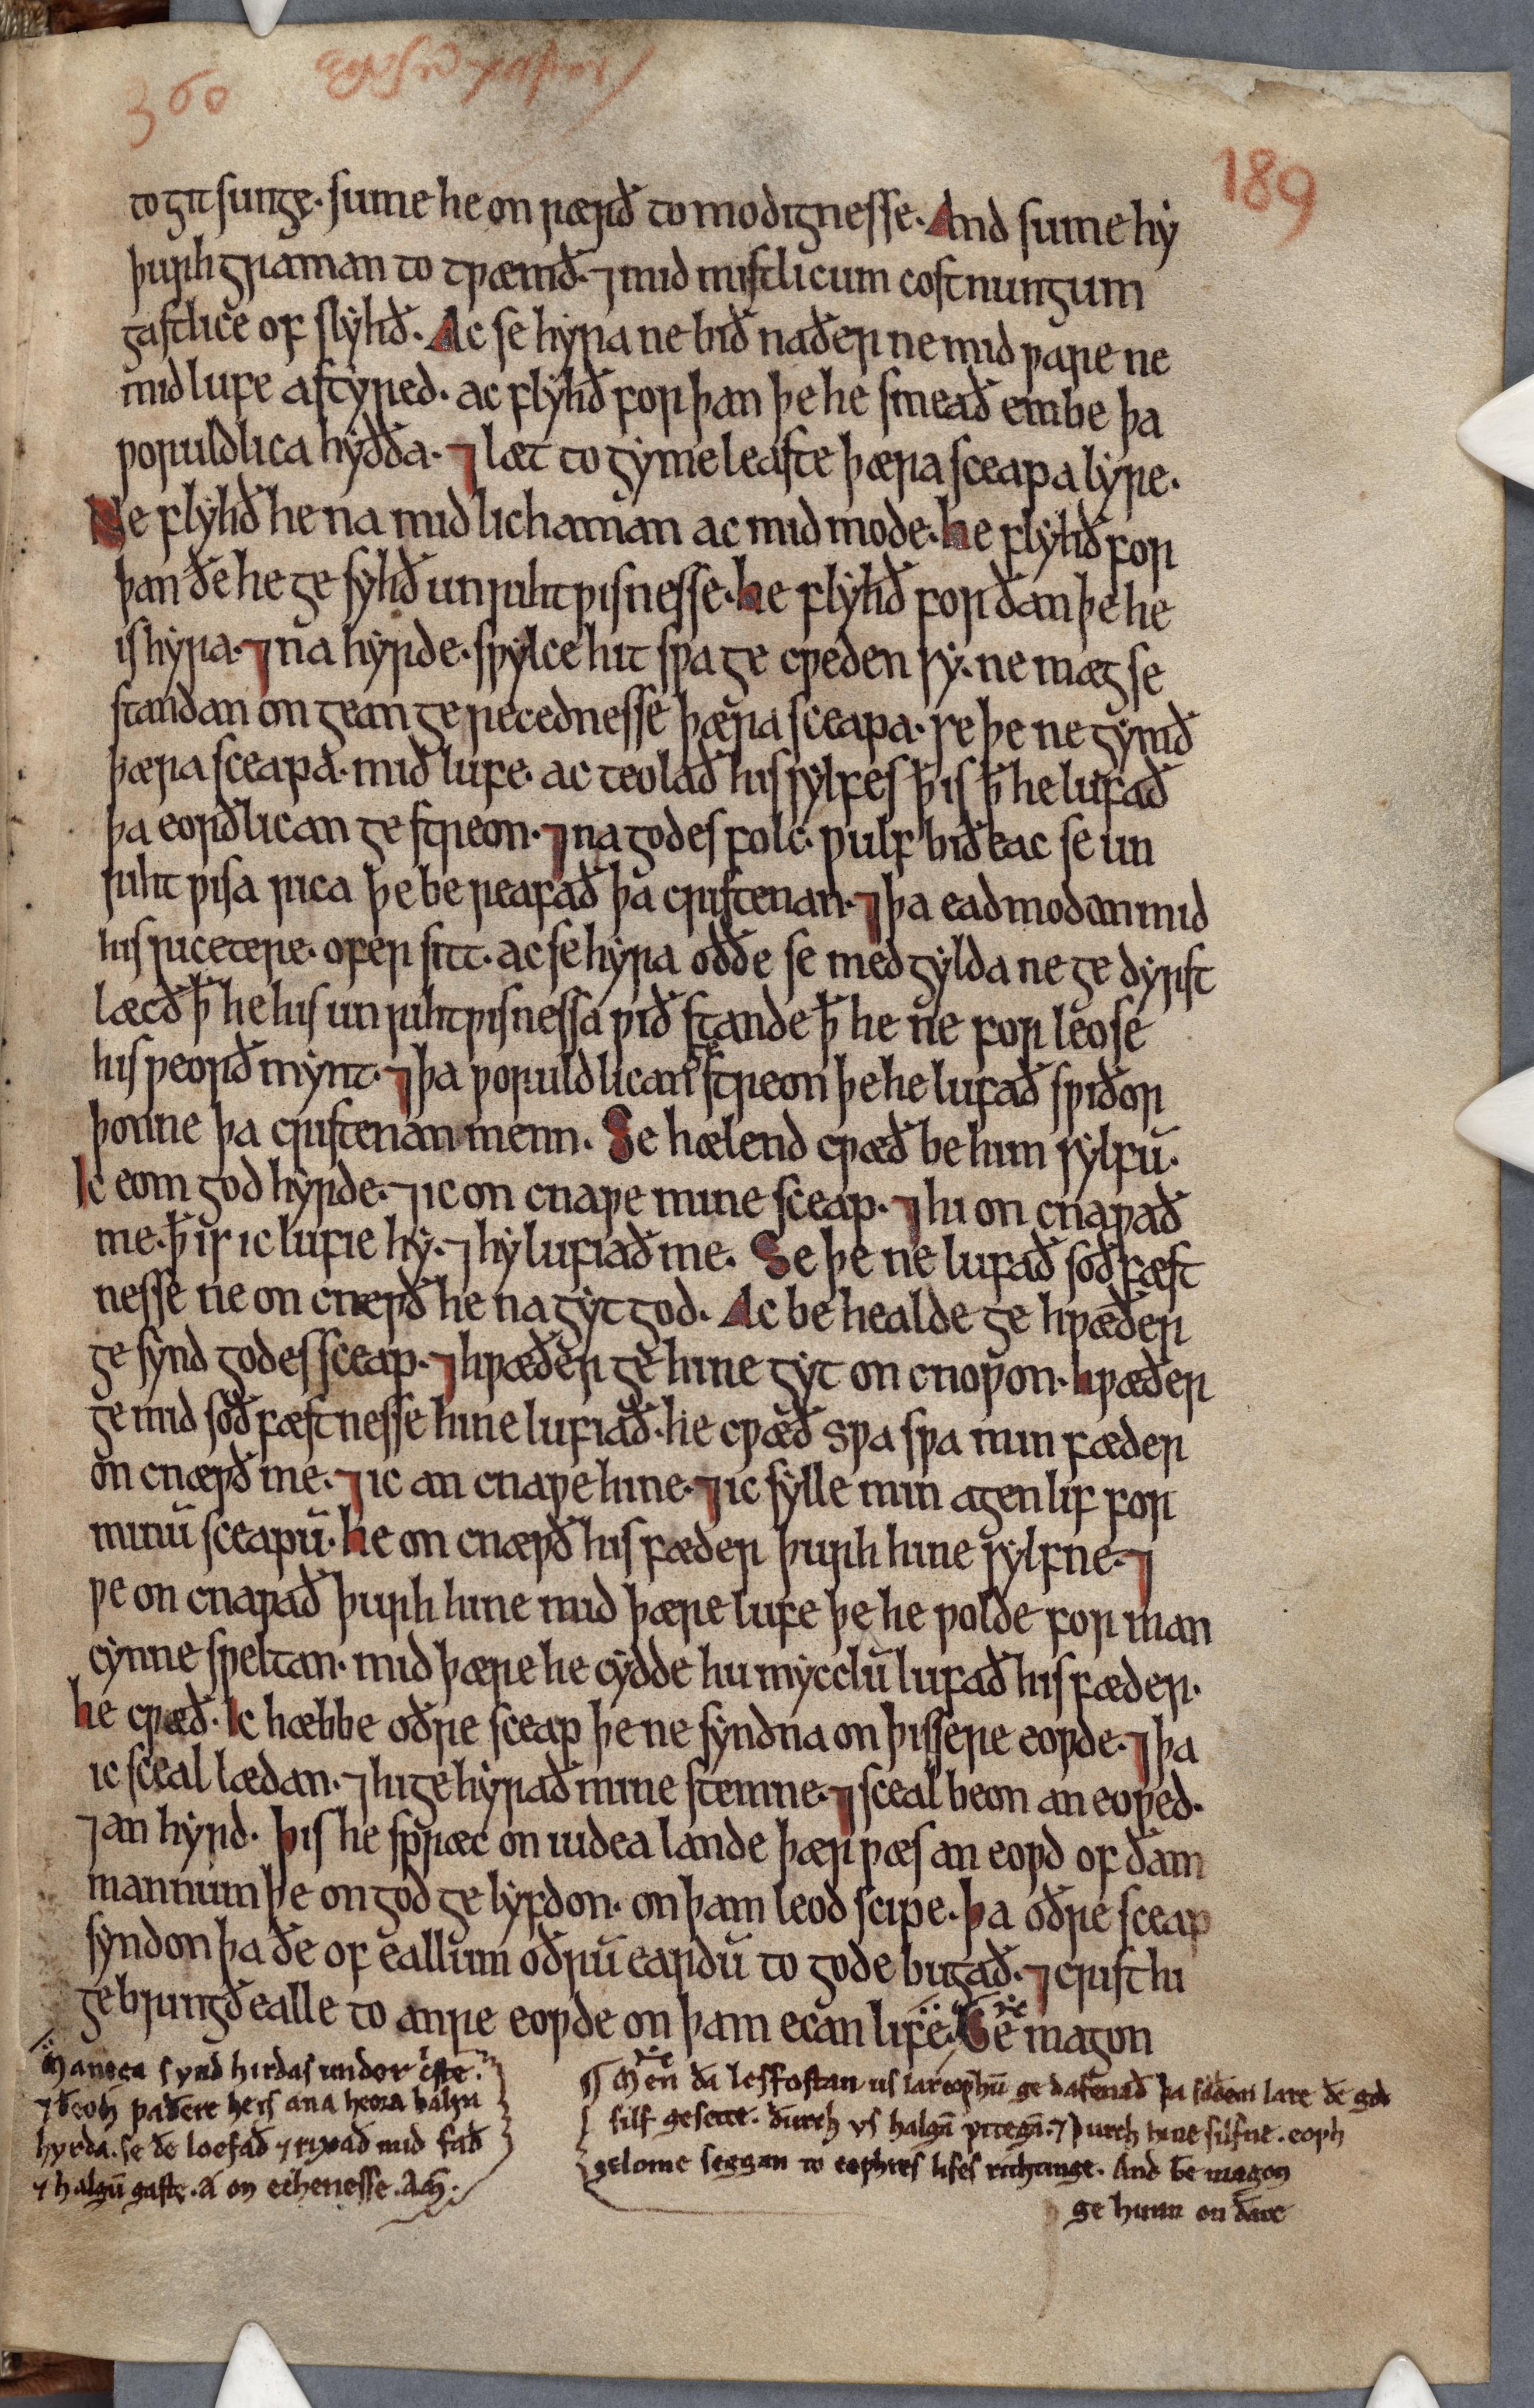 360
189
to gitsunge. sume he on rærð to modignesse. And sume hẏ
þurh graman to tƿæmð. ⁊ mid mistlicum costnungum
gastlice of slẏhð. Ac se hẏra ne bið naðer ne mid ƿare ne
mid lufe astẏred. ac flẏhð for þan þe he smeað embe þa
ƿoruldlica hẏðða. ⁊ læt to gẏmeleaste þæra sceapa lẏre.
Ne flẏhð he na mid lichaman ac mid mode. he flẏhð for
þan ðe he ge sẏhð unrihtƿisnesse. he flẏhð for ðan þe he
is hẏra. ⁊ na hẏrde. sƿẏlce hit sƿa ge cƿeden sẏ. ne mæg se
standan ongean ge recednesse þæra sceapa. se þe ne gẏmð
þæra sceapa. mid lufe. ac teolað his sẏlfes ꝥ is ꝥ he lufað
þa eorðlican ge streon. ⁊ na godes folc. ƿulf bið eac se un
riht ƿisa rica þe be reafað þa cristenan. ⁊ þa eadmodan mid
his ricetere. ofer sitt. ac se hẏra oððe se med gẏlda ne ge dẏrst
læcð ꝥ he his unrihtƿisnessa ƿið stande ꝥ he ne for leose
his ƿeorðmẏnt. ⁊ þa ƿoruldlican ge streon þe he lufað sƿiðor
þonne þa cristenan menn. Se hælend cƿæð be him sẏlfū.
Ic eom god hẏrde. ⁊ ic on cnaƿe mine sceap. ⁊ hi on cnaƿað
me. ꝥ is ic lufie hẏ. ⁊ hẏ lufiað me. Se þe ne lufað soðfæst
nesse ne on cnæƿð he na gẏt god. Ac be healde ge hƿæðer
ge synd godes sceap. ⁊ hƿæðer ge hine gẏt on cnoƿon. hƿæðer
ge mid soðfæstnesse hine lufiað. he cƿæð sƿa sƿa min fæder
on cnæƿð me. ⁊ ic an cnaƿe hine. ⁊ ic sẏlle min agen lif for
minū sceapū. he on cnæƿð his fæder þurh hine sẏlfne. ⁊
ƿe on cnaƿað þurh hine mid þære lufe þe he ƿolde for man
cẏnne sƿeltan. mid þære he cẏdde hu mẏcclū lufað his fæder.
he cƿæð. Ic hæbbe oðre sceap þe ne sẏnd na on þissere eoƿde. ⁊ þa
ic sceal lædan. ⁊ hi ge hẏrað mine stemne. ⁊ sceal beon an eoƿed.
⁊ an hẏrd. þis he spræc on iudea lande þær ƿæs an eoƿd of ðam
mannum þe on god ge lẏfdon. on þam leodscipe. þa oðre sceap
sẏndon þa ðe of eallum oðrū eardū to gode bugað. ⁊ crist hi
gebringð ealle to anre eoƿde on þam ecan life. Ge magon
Manega synd hirdas under c̄ste.
⁊ ðeoh ƿaðere he is ana heora halga
hyrda. se ðe loefað ⁊ rixað mid fað
⁊ halgū gaste. A on echenesse. Am̄.
Men ða leofostan us lareoƿū ge dafenað þa ðe god
silf gesette. ðurch ys halgā ƿitegā. ⁊ þurch hine silfne. eoƿ
gelome seggan to eoƿres lifes richtinge. And be magon
ge hiran on ðare